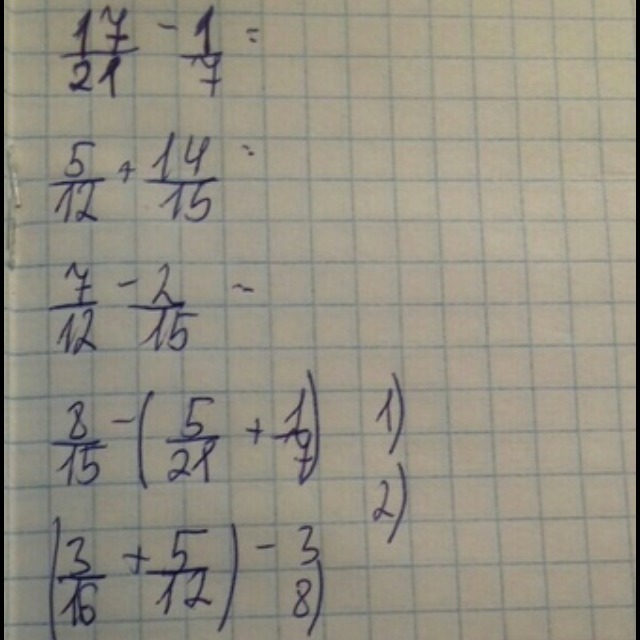 17/21 - 1/7 =
5/12 + 14/15 =
7/12 - 2/15 =
8/15 - (5/21 + 1/7) 1)
2)
(3/16 + 5/12) - 3/8)